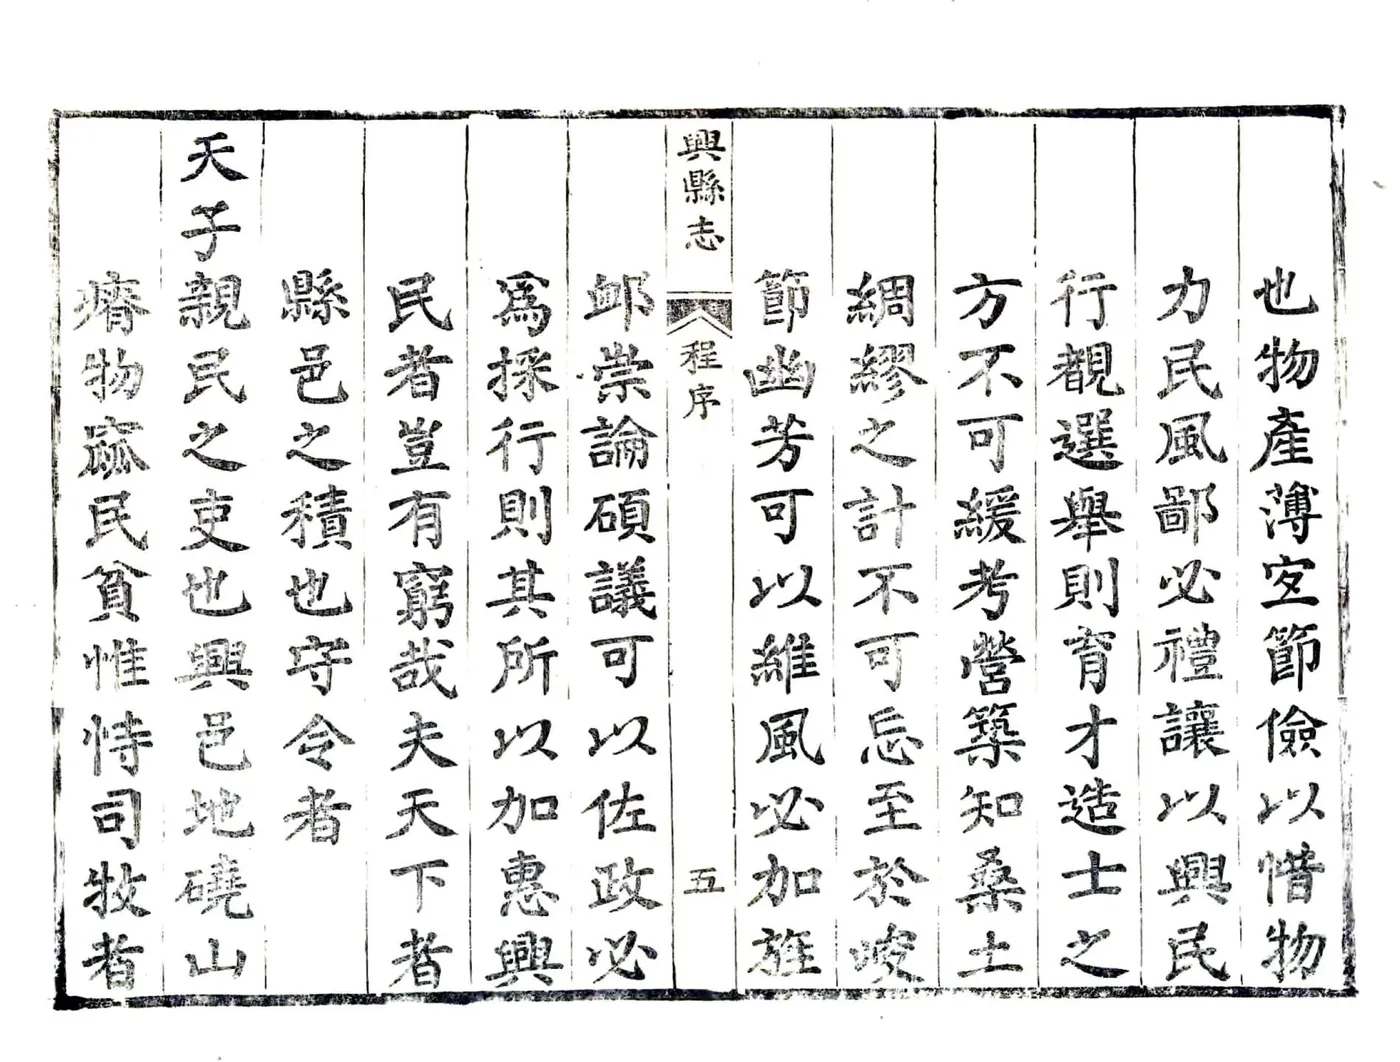 也物產薄宐節儉以惜物
力民風鄙必禮讓以興民
行覩選舉則育才造士之
方不可緩考營築知桑土
綢繆之計不可忘至於峻
節幽芳可以維風必加旌
興縣志
程序
五
卹崇論碩議可以佐政必
爲採行則其所以加惠興
民者豈有窮哉夫天下者
縣邑之積也守令者
天子親民之吏也興邑地磽山
瘠物窳民貧惟恃司牧者